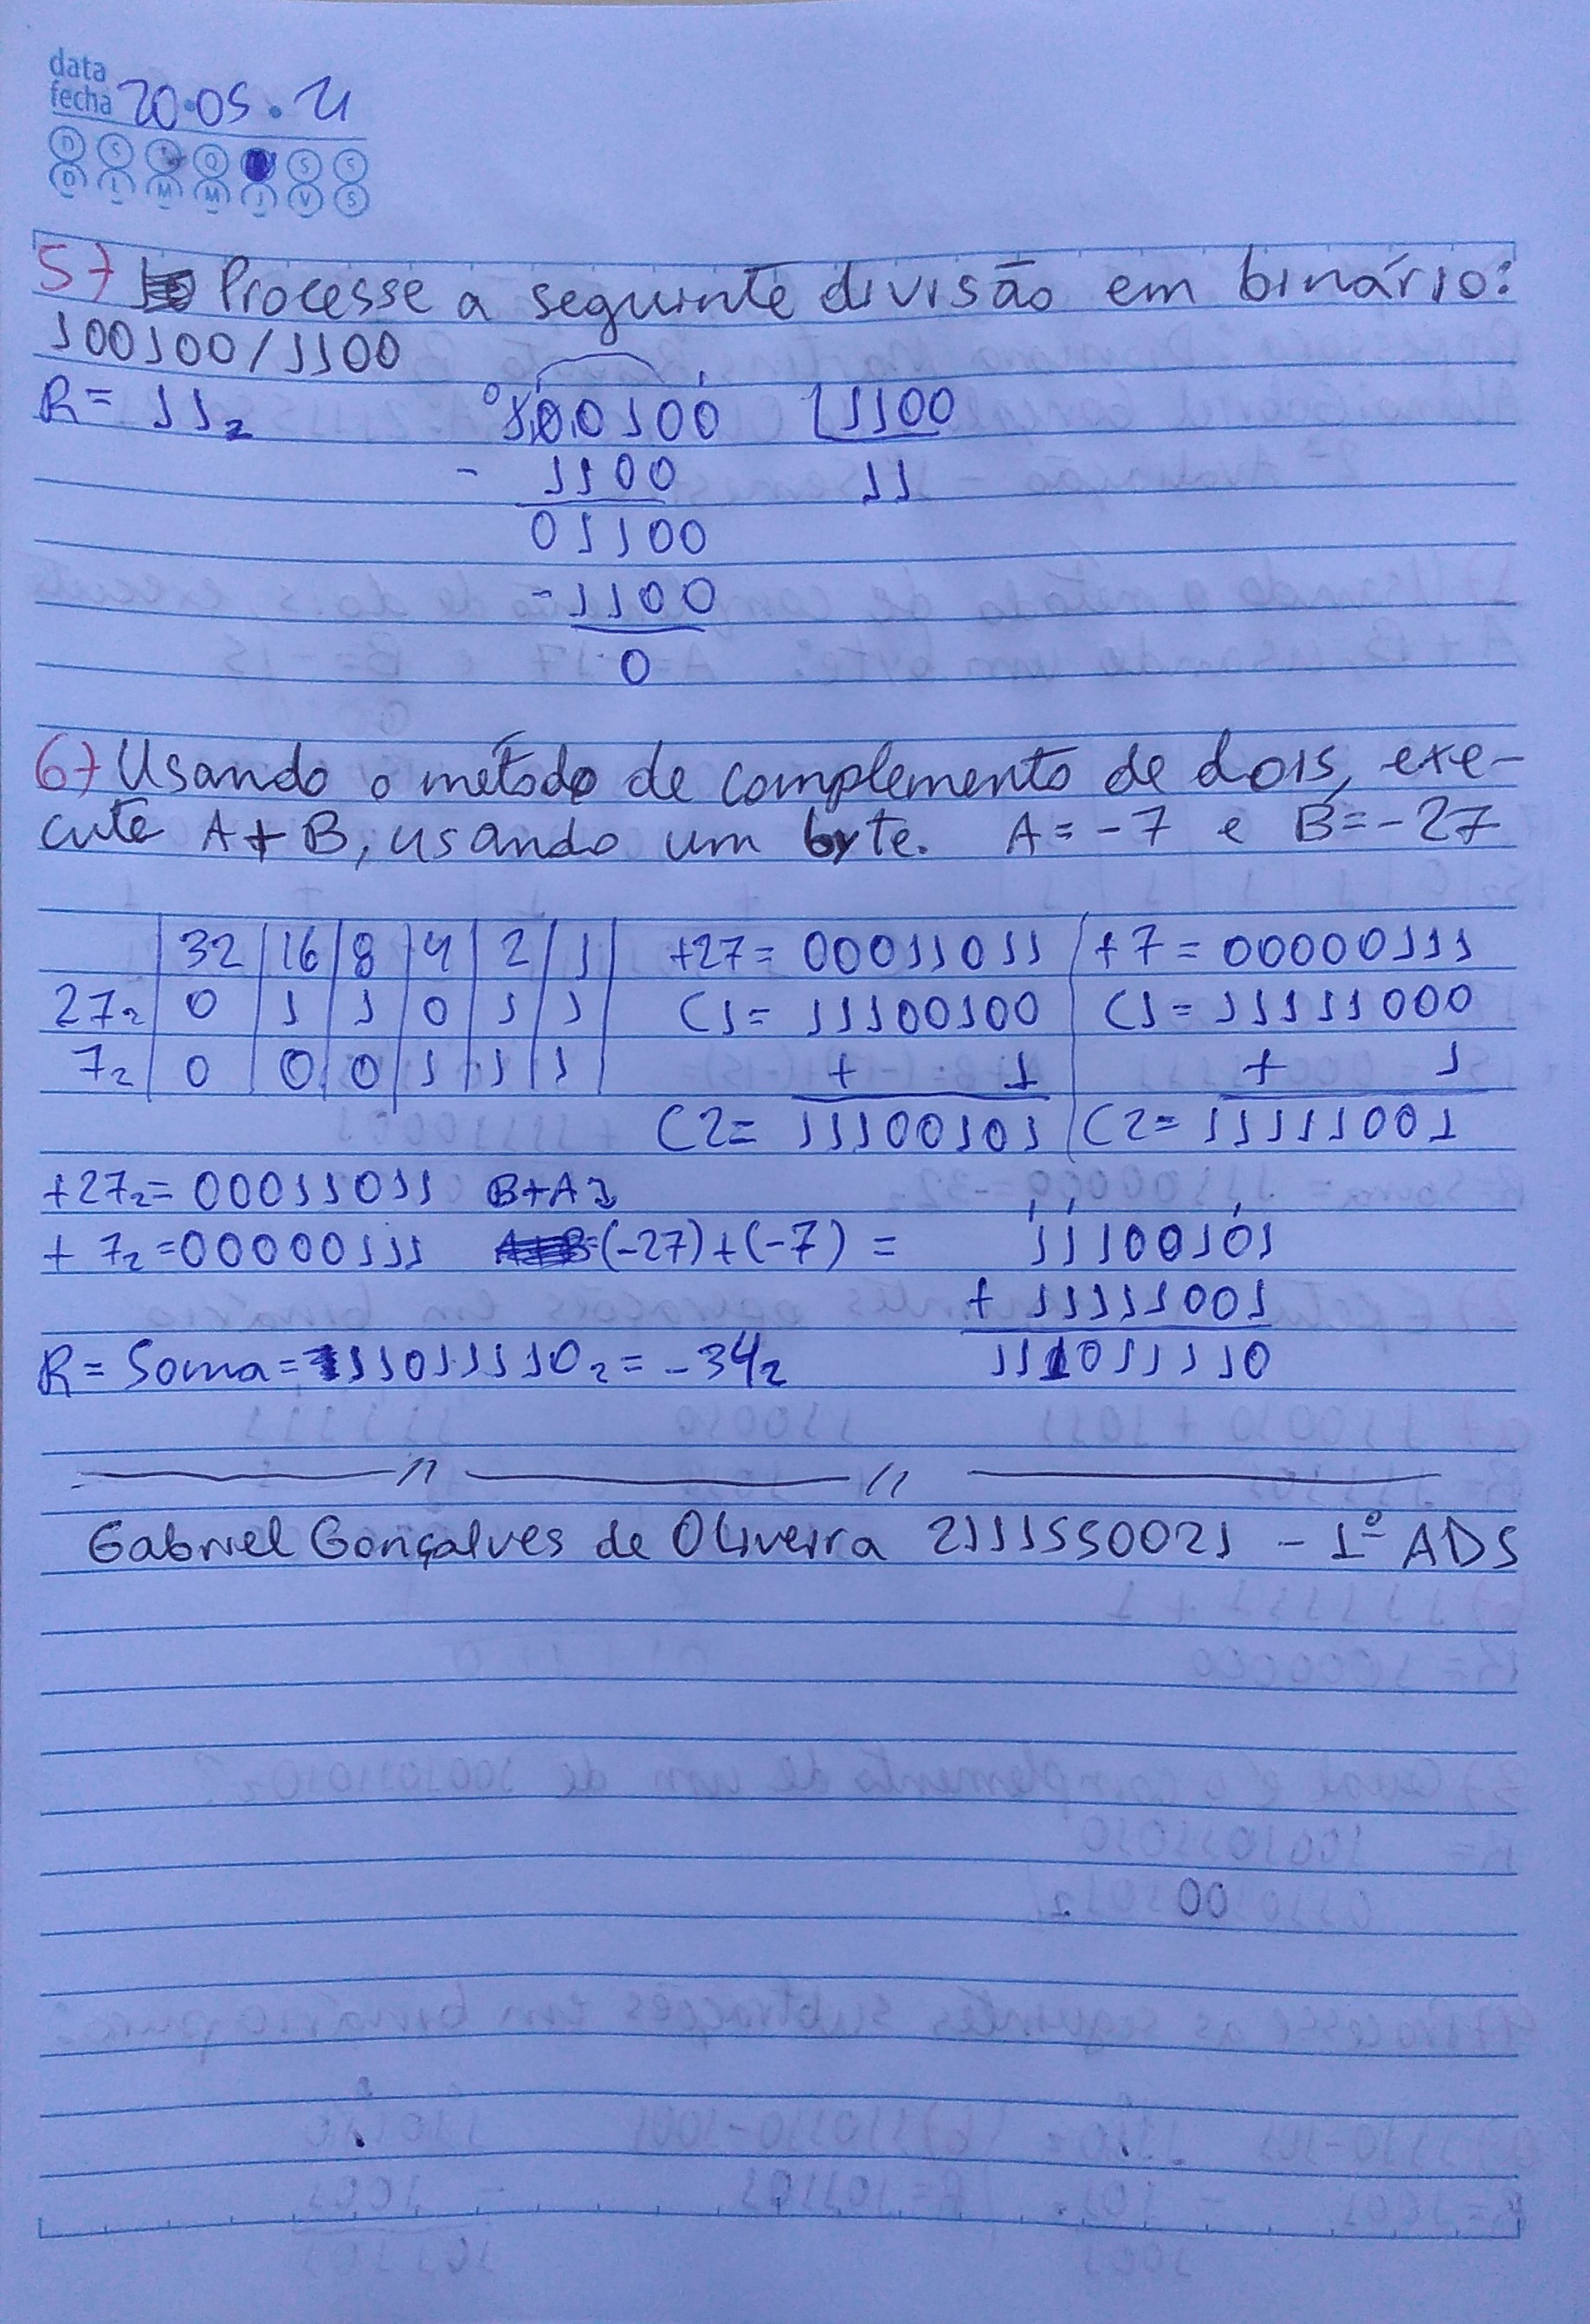 data
fecha 20.05.21
D S T Q Q S S
D L M M J V S
5) Processe a seguinte divisão em binário:
100100/1100
R= 11₂ 0100100 1100
- 1100 11
01100
-1100
0
6) Usando o método de complemento de dois, exe-
cute A+B, usando um byte. A=-7 e B=-27
32 16 8 4 2 1 +27= 00011011 +7=00000111
27₂ 0 1 1 0 1 1 C1= 11100100 C1=11111000
7₂ 0 0 0 1 1 1 + 1 + 1
C2= 11100101 C2=11111001
+27₂=00011011 B+A
+ 7₂=00000111 (-27)+(-7) = 11100101
+ 11111001
R= Soma= 111011110₂=-34₂ 111011110
Gabriel Gonçalves de Oliveira 2111550021 - 1º ADS